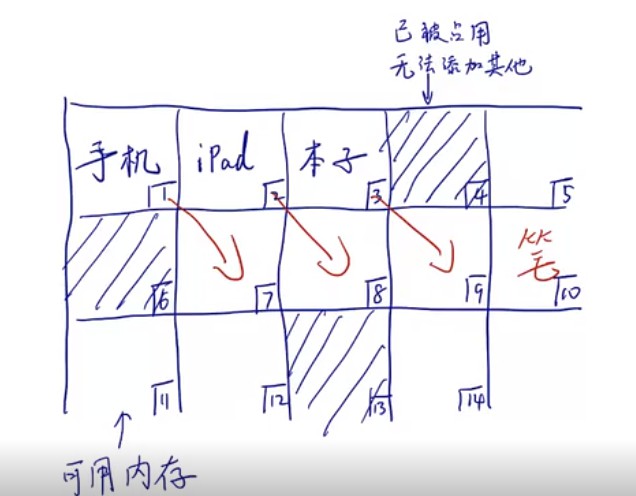 已被占用
无法添加其他
手机 iPad 本子
1 2 3 4 5
笔
6 7 8 9 10
11 12 13 14
可用内存